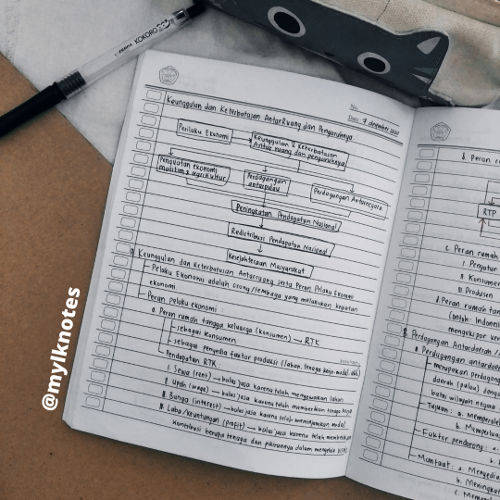 KOKORO
@mylknotes
No.
Date. 7 desember
Keunggulan dan Keterbatasan Antar Ruang dan Pengaruhnya
Perilaku Ekonomi
Keunggulan & Keterbatasan
Antar ruang dan pengaruhnya
Penguatan ekonomi
maritim & agrikultur
Perdagangan
antarpulau
Perdagangan Antarnegara
Peningkatan Pendapatan Nasional
Redistribusi Pendapatan Nasional
Kesejahteraan Masyarakat
Keunggulan dan Keterbatasan Antarruang serta Peran Pelaku Ekonomi
Pelaku Ekonomi adalah orang/lembaga yang melakukan kegiatan
ekonomi
Peran pelaku ekonomi
a. Peran rumah tangga keluarga (konsumen) → RTK
sebagai konsumen
sebagai penyedia faktor produksi (lahan, tenaga kerja, modal,
Pendapatan RTK :
I. Sewa (rent) → balas jasa karena telah menyewakan lahan
II. Upah (wage) → balas jasa karena telah memberikan tenaga kerja
III. Bunga (interest) → balas jasa karena telah meminjamkan modal
IV. Laba/Keuntungan (profit) → balas jasa karena telah memberikan
kontribusi berupa tenaga dan pikirannya dalam mengelola
b. Peran
RTP
c. Peran rumah
I. Penyalur
II. Konsumen
III. Produsen
d. Peran rumah
(contoh: Indones
mengekspor ke
B. Perdagangan Antardaerah
a. Perdagangan antardaerah
merupakan perdagan
daerah (pulau) dengan
batas wilayah negara
Tujuan : a. memperoleh
b. Memperluas
Faktor pendorong : a.
b.
Manfaat : a. Menyedia
b. Meningkat
c.